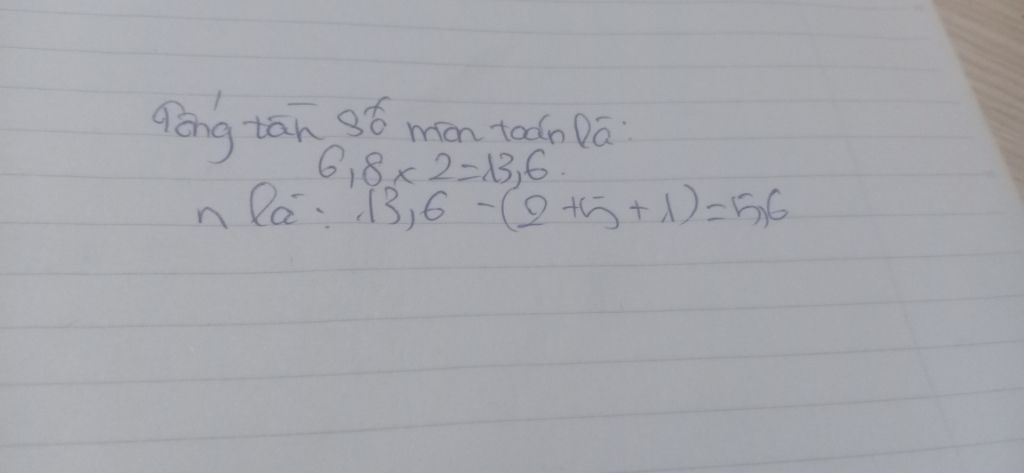 Tổng tần số môn toán là:
6,8 × 2 = 13,6.
n là: 13,6 - (2 + 5 + 1) = 5,6